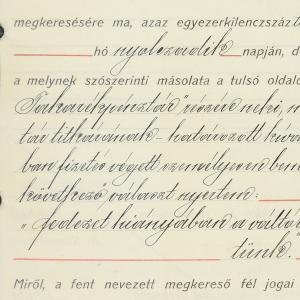 megkeresésére ma, azaz egyezerkilenczszáz
hó nyolczadik napján, d
a melynek szószerinti másolata a tulsó oldalo
Takarékpénztár" részére neki, m
tár titkárának – határozott kívá
ban fizetés végett személyesen bem
következő választ nyertem:
„fedezet hiányában a váltót
tünk.
Miről, a fent nevezett megkereső fél jogai